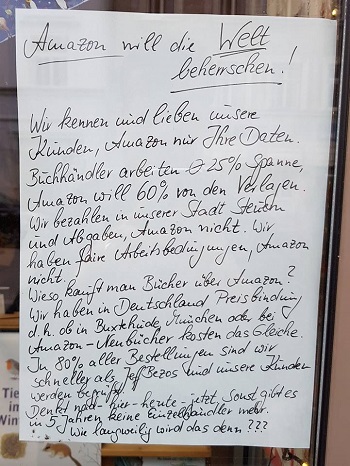 Amazon will die Welt
beherrschen!
Wir kennen und lieben unsere
Kunden, Amazon nur Ihre Daten.
Buchhändler arbeiten Ø 25% Spanne,
Amazon will 60% von den Verlagen.
Wir bezahlen in unserer Stadt Steuern
und Abgaben, Amazon nicht. Wir
haben faire Arbeitsbedingungen, Amazon
nicht.
Wieso kauft man Bücher über Amazon?
Wir haben in Deutschland Preisbindung
d.h. ob in Buxtehude, München oder bei
Amazon - Neubücher kosten das Gleiche.
In 80% aller Bestellungen sind wir
schneller als Jeff Bezos und unsere Kunden
werden begrüßt.
Denkt nach - hier - heute - jetzt. Sonst gibt es
in 5 Jahren keine Einzelhändler mehr.
Wie langweilig wird das denn???
Tie
im
Win